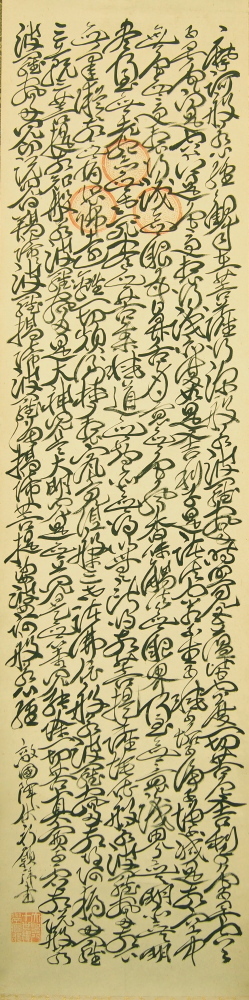 摩訶般若心經 觀自在菩薩行深般若波羅蜜多時照見五蘊皆空度一切苦厄舍利子色不異空
空不異色色即是空空即是色受想行識亦復如是舍利子是諸法空相不生不滅不垢不淨不增不減是故空中
無色無受想行識無眼耳鼻舌身意無色聲香味觸法無眼界乃至無意識界無無明亦無無明
盡乃至無老死亦無老死盡無苦集滅道無智亦無得以無所得故菩提薩埵依般若波羅蜜多故心
無罣礙無罣礙故無有恐怖遠離一切顛倒夢想究竟涅槃三世諸佛依般若波羅蜜多故得阿耨多羅
三藐三菩提故知般若波羅蜜多是大神咒是大明咒是無上咒是無等等咒能除一切苦真實不虛故說般若
波羅蜜多咒即說咒曰揭諦揭諦波羅揭諦波羅僧揭諦菩提薩婆訶般若心經